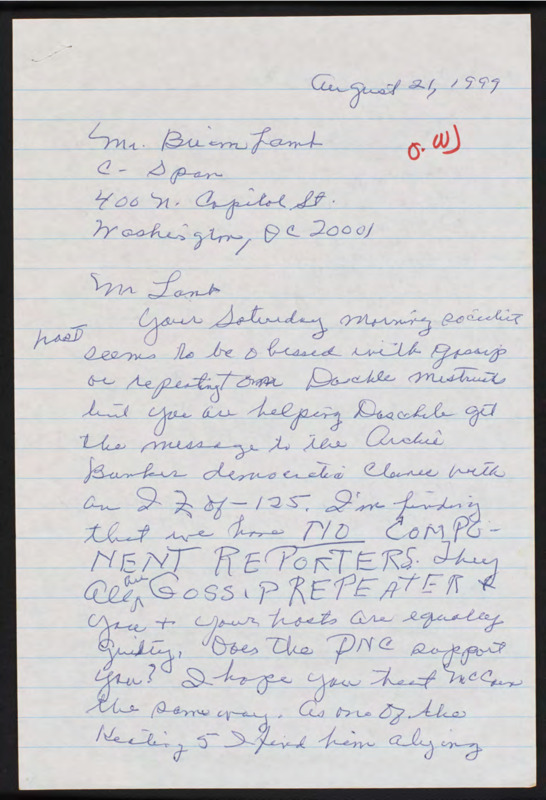 August 21, 1999
Mr. Brian Lamb
O.W
C-Span
400 N. Capitol St.
Washington, DC 20001
Mr Lamb
Your Saturday morning socialist
host
seems to be obessed with gossip
or repeating Daschle
but you are helping Daschele get
the message to the Archie
Bunker democratic with
an I Q of -125. I'm finding
that we have NO COMPO-
NENT REPORTERS. They
All are GOSSIP REPEATER &
you + your hosts are equally
guilty. Does the DNC support
you? I hope you treat McCain
the same way. As one of the
Keating 5 I find him a lying